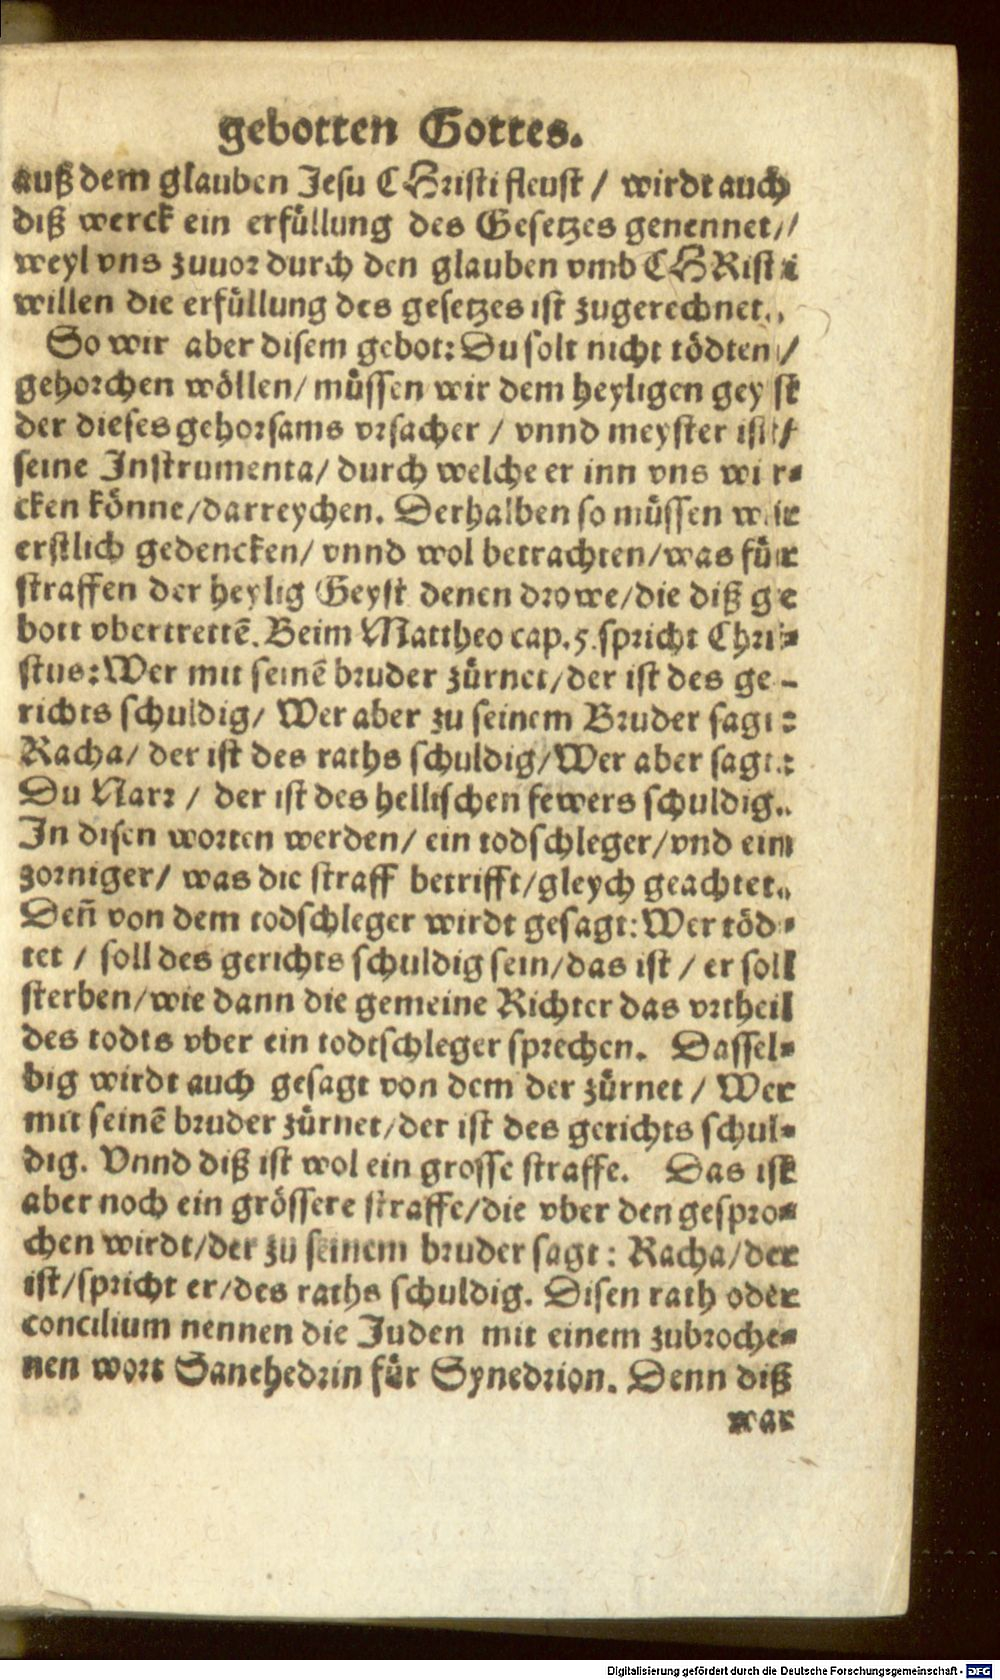 gebotten Gottes.
auß dem glauben Jesu CHristi fleust / wirdt auch
diß werck ein erfüllung des Gesetzes genennet /
weyl vns zuuor durch den glauben vmb CHRisti
willen die erfüllung des gesetzes ist zugerechnet.
So wir aber disem gebot: Du solt nicht tödten /
gehorchen wöllen / müssen wir dem heyligen geyst
der dieses gehorsams vrsacher / vnnd meyster ist /
seine Instrumenta / durch welche er inn vns wir-
cken könne / darreychen. Derhalben so müssen wir
erstlich gedencken / vnnd wol betrachten / was für
straffen der heylig Geyst denen drowe / die diß ge
bott vbertrettē. Beim Mattheo cap. 5. spricht Chri-
stus: Wer mit seinē bruder zürnet / der ist des ge-
richts schuldig / Wer aber zu seinem Bruder sagt:
Racha / der ist des raths schuldig / Wer aber sagt:
Du Narr / der ist des hellischen fewers schuldig.
In disen worten werden / ein todschleger / vnd ein
zorniger / was die straff betrifft / gleych geachtet.
Deñ von dem todschleger wirdt gesagt: Wer töd-
tet / soll des gerichts schuldig sein / das ist / er soll
sterben / wie dann die gemeine Richter das vrtheil
des todts vber ein todtschleger sprechen. Dassel-
big wirdt auch gesagt von dem der zürnet / Wer
mit seinē bruder zürnet / der ist des gerichts schul-
dig. Vnnd diß ist wol ein grosse straffe. Das ist
aber noch ein grössere straffe / die vber den gespro-
chen wirdt / der zu seinem bruder sagt: Racha / der
ist / spricht er / des raths schuldig. Disen rath oder
concilium nennen die Juden mit einem zubroche-
nen wort Sanehedrin für Synedrion. Denn diß
war
Digitalisierung gefördert durch die Deutsche Forschungsgemeinschaft - DFG